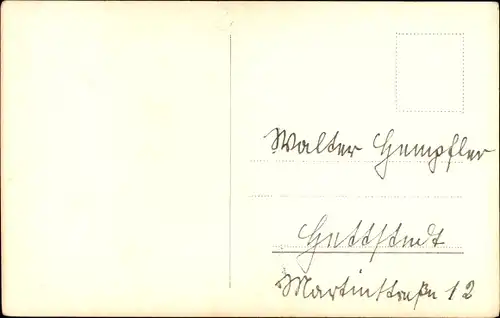 Walter Hempfler
Hettstedt
Martinstraße 12